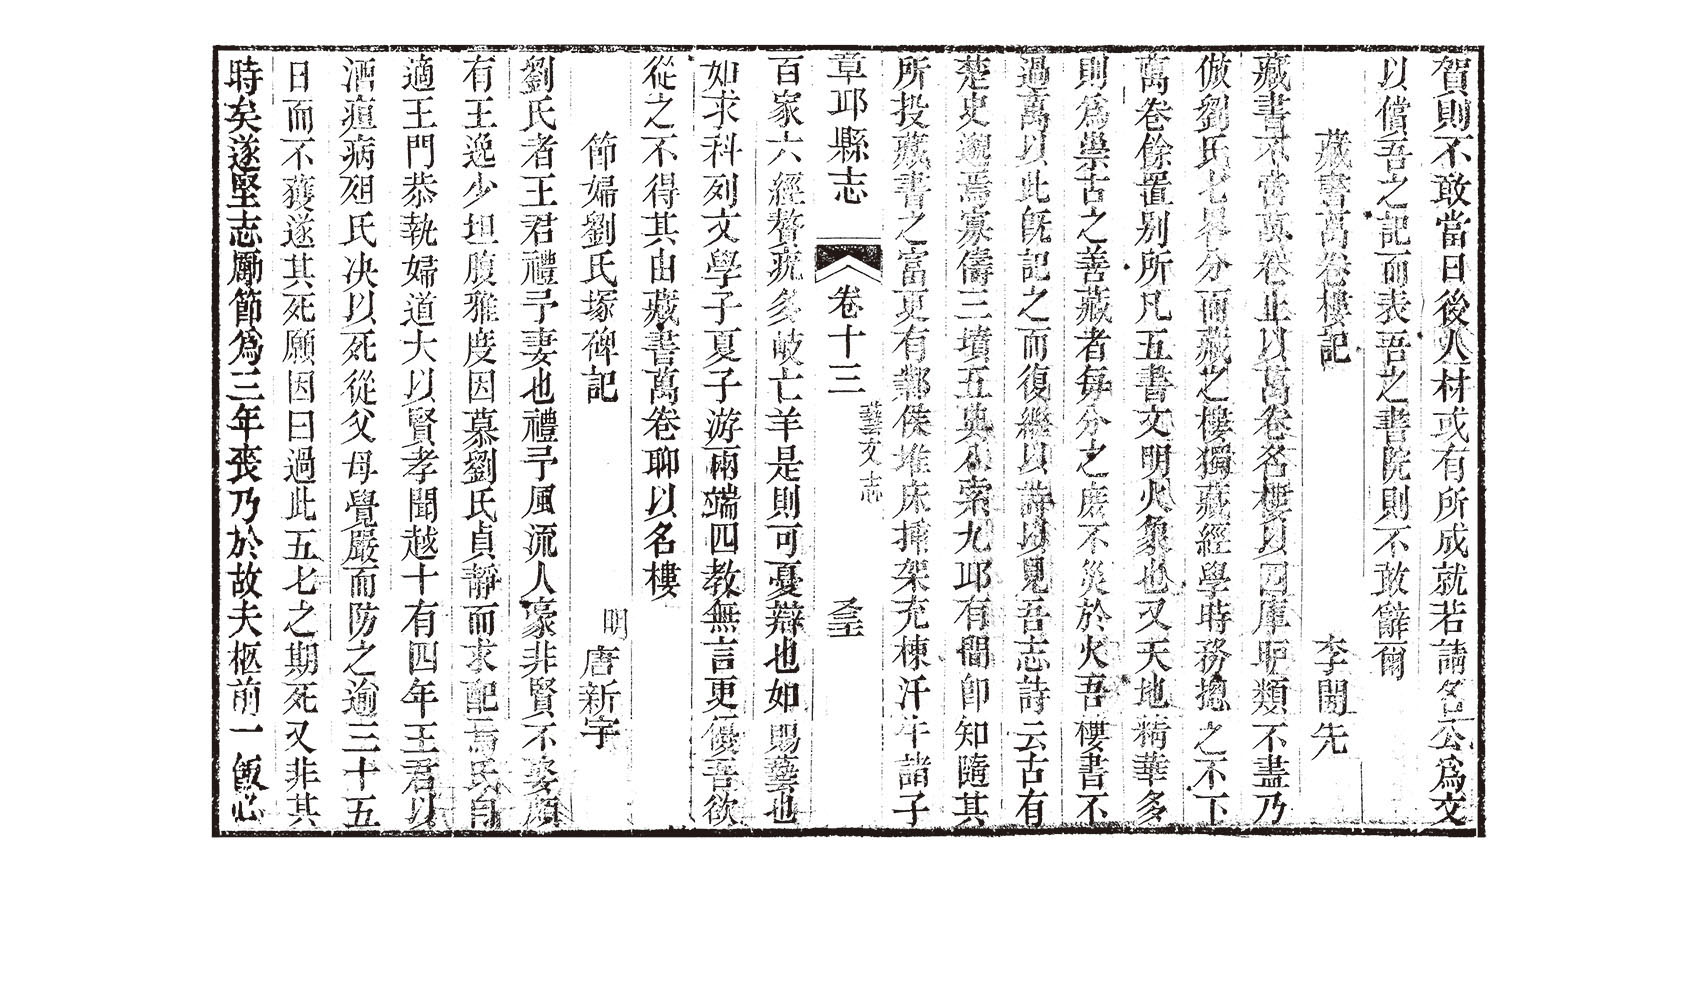 賀則不敢當日後人材或有所成就若請名公爲文
以償吾之記而表吾之書院則不敢辭爾
藏書萬卷樓記
李開先
藏書不啻萬卷止以萬卷名樓以四庫胪類不盡乃
倣劉氏七畧分而藏之樓獨藏經學時務摠之不下
萬卷餘置别所凡五書文明火象也又天地精華多
則爲祟古之善藏者每分之庶不災於火吾樓書不
過萬以此旣記之而復繼以詩以見吾志詩云古有
楚史邈焉寡儔三墳五典八索九邱有聞卽知隨其
所投藏書之富更有鄴侯堆床揷架充棟汗牛諸子
章邱縣志
卷十三
藝文志
百家六經贅疣多岐亡羊是則可憂辯也如賜藝也
如求科列文學子夏子游兩端四教無言更優吾欲
從之不得其由藏書萬卷聊以名樓
節婦劉氏塚碑記
明
唐新宇
劉氏者王君禮予妻也禮予風流人豪非賢不娶顧
有王逸少坦腹雅度因慕劉氏貞靜而求配焉氏自
適王門恭執婦道大以賢孝聞越十有四年王君以
酒疸病殂氏决以死從父母覺嚴而防之逾三十五
日而不獲遂其死願因曰過此五七之期死又非其
時矣遂堅志勵節爲三年喪乃於故夫柩前一飯必